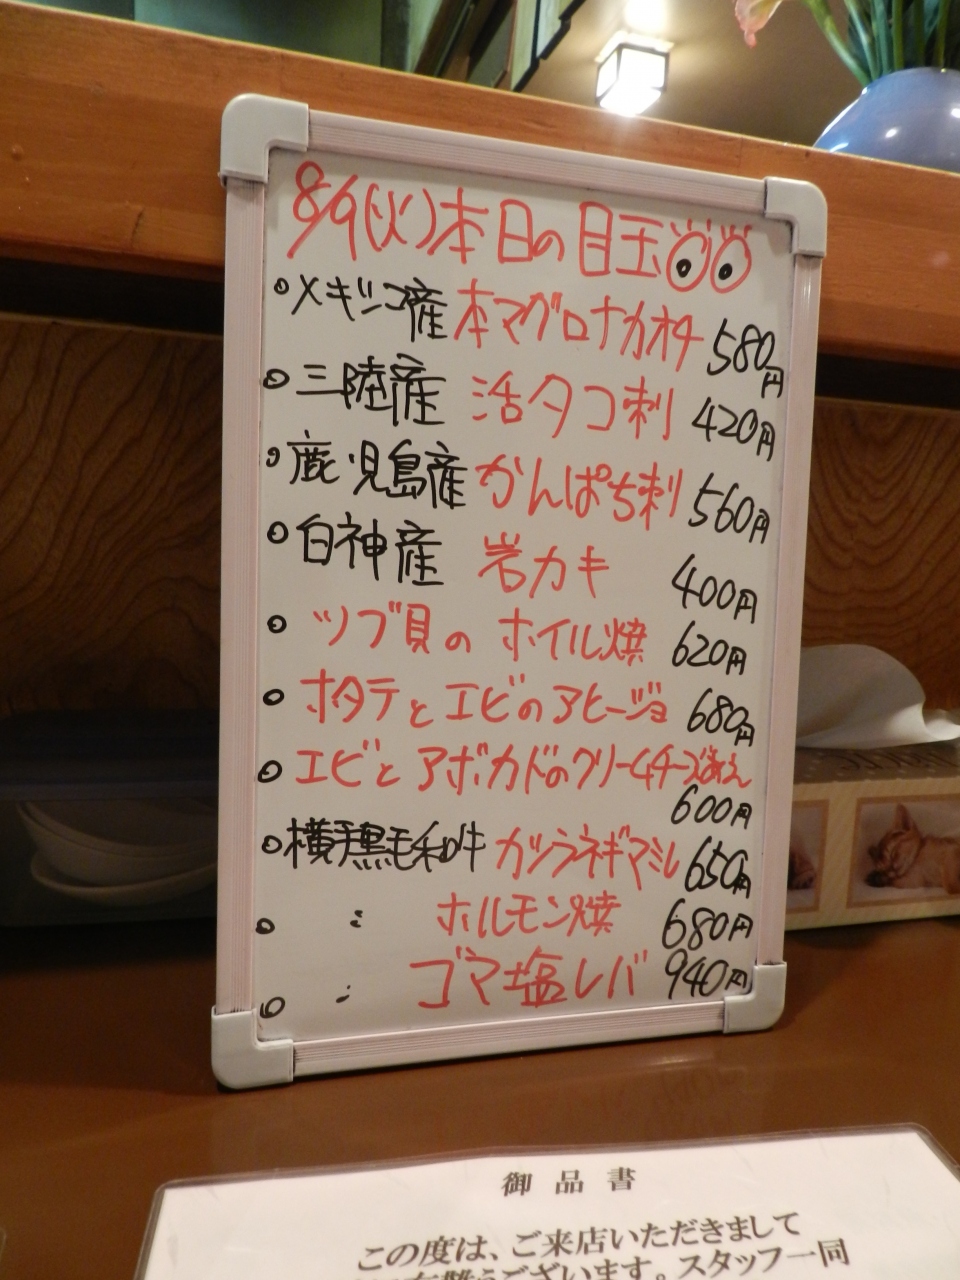 8/9(火)本日の目玉
・メキシコ産 本マグロナカオチ 580円
・三陸産 活タコ刺 420円
・鹿児島産 かんぱち刺 560円
・白神産 岩カキ 400円
・ツブ貝の ホイル焼 620円
・ホタテとエビのアヒージョ 680円
・エビとアボカドのクリームチーズあえ
600円
・横手黒毛和牛 ガツラネギマミレ 650円
・ 〃 ホルモン焼 680円
・ 〃 ゴマ塩レバ 940円
御品書
この度は、ご来店いただきまして
ございます。スタッフ一同